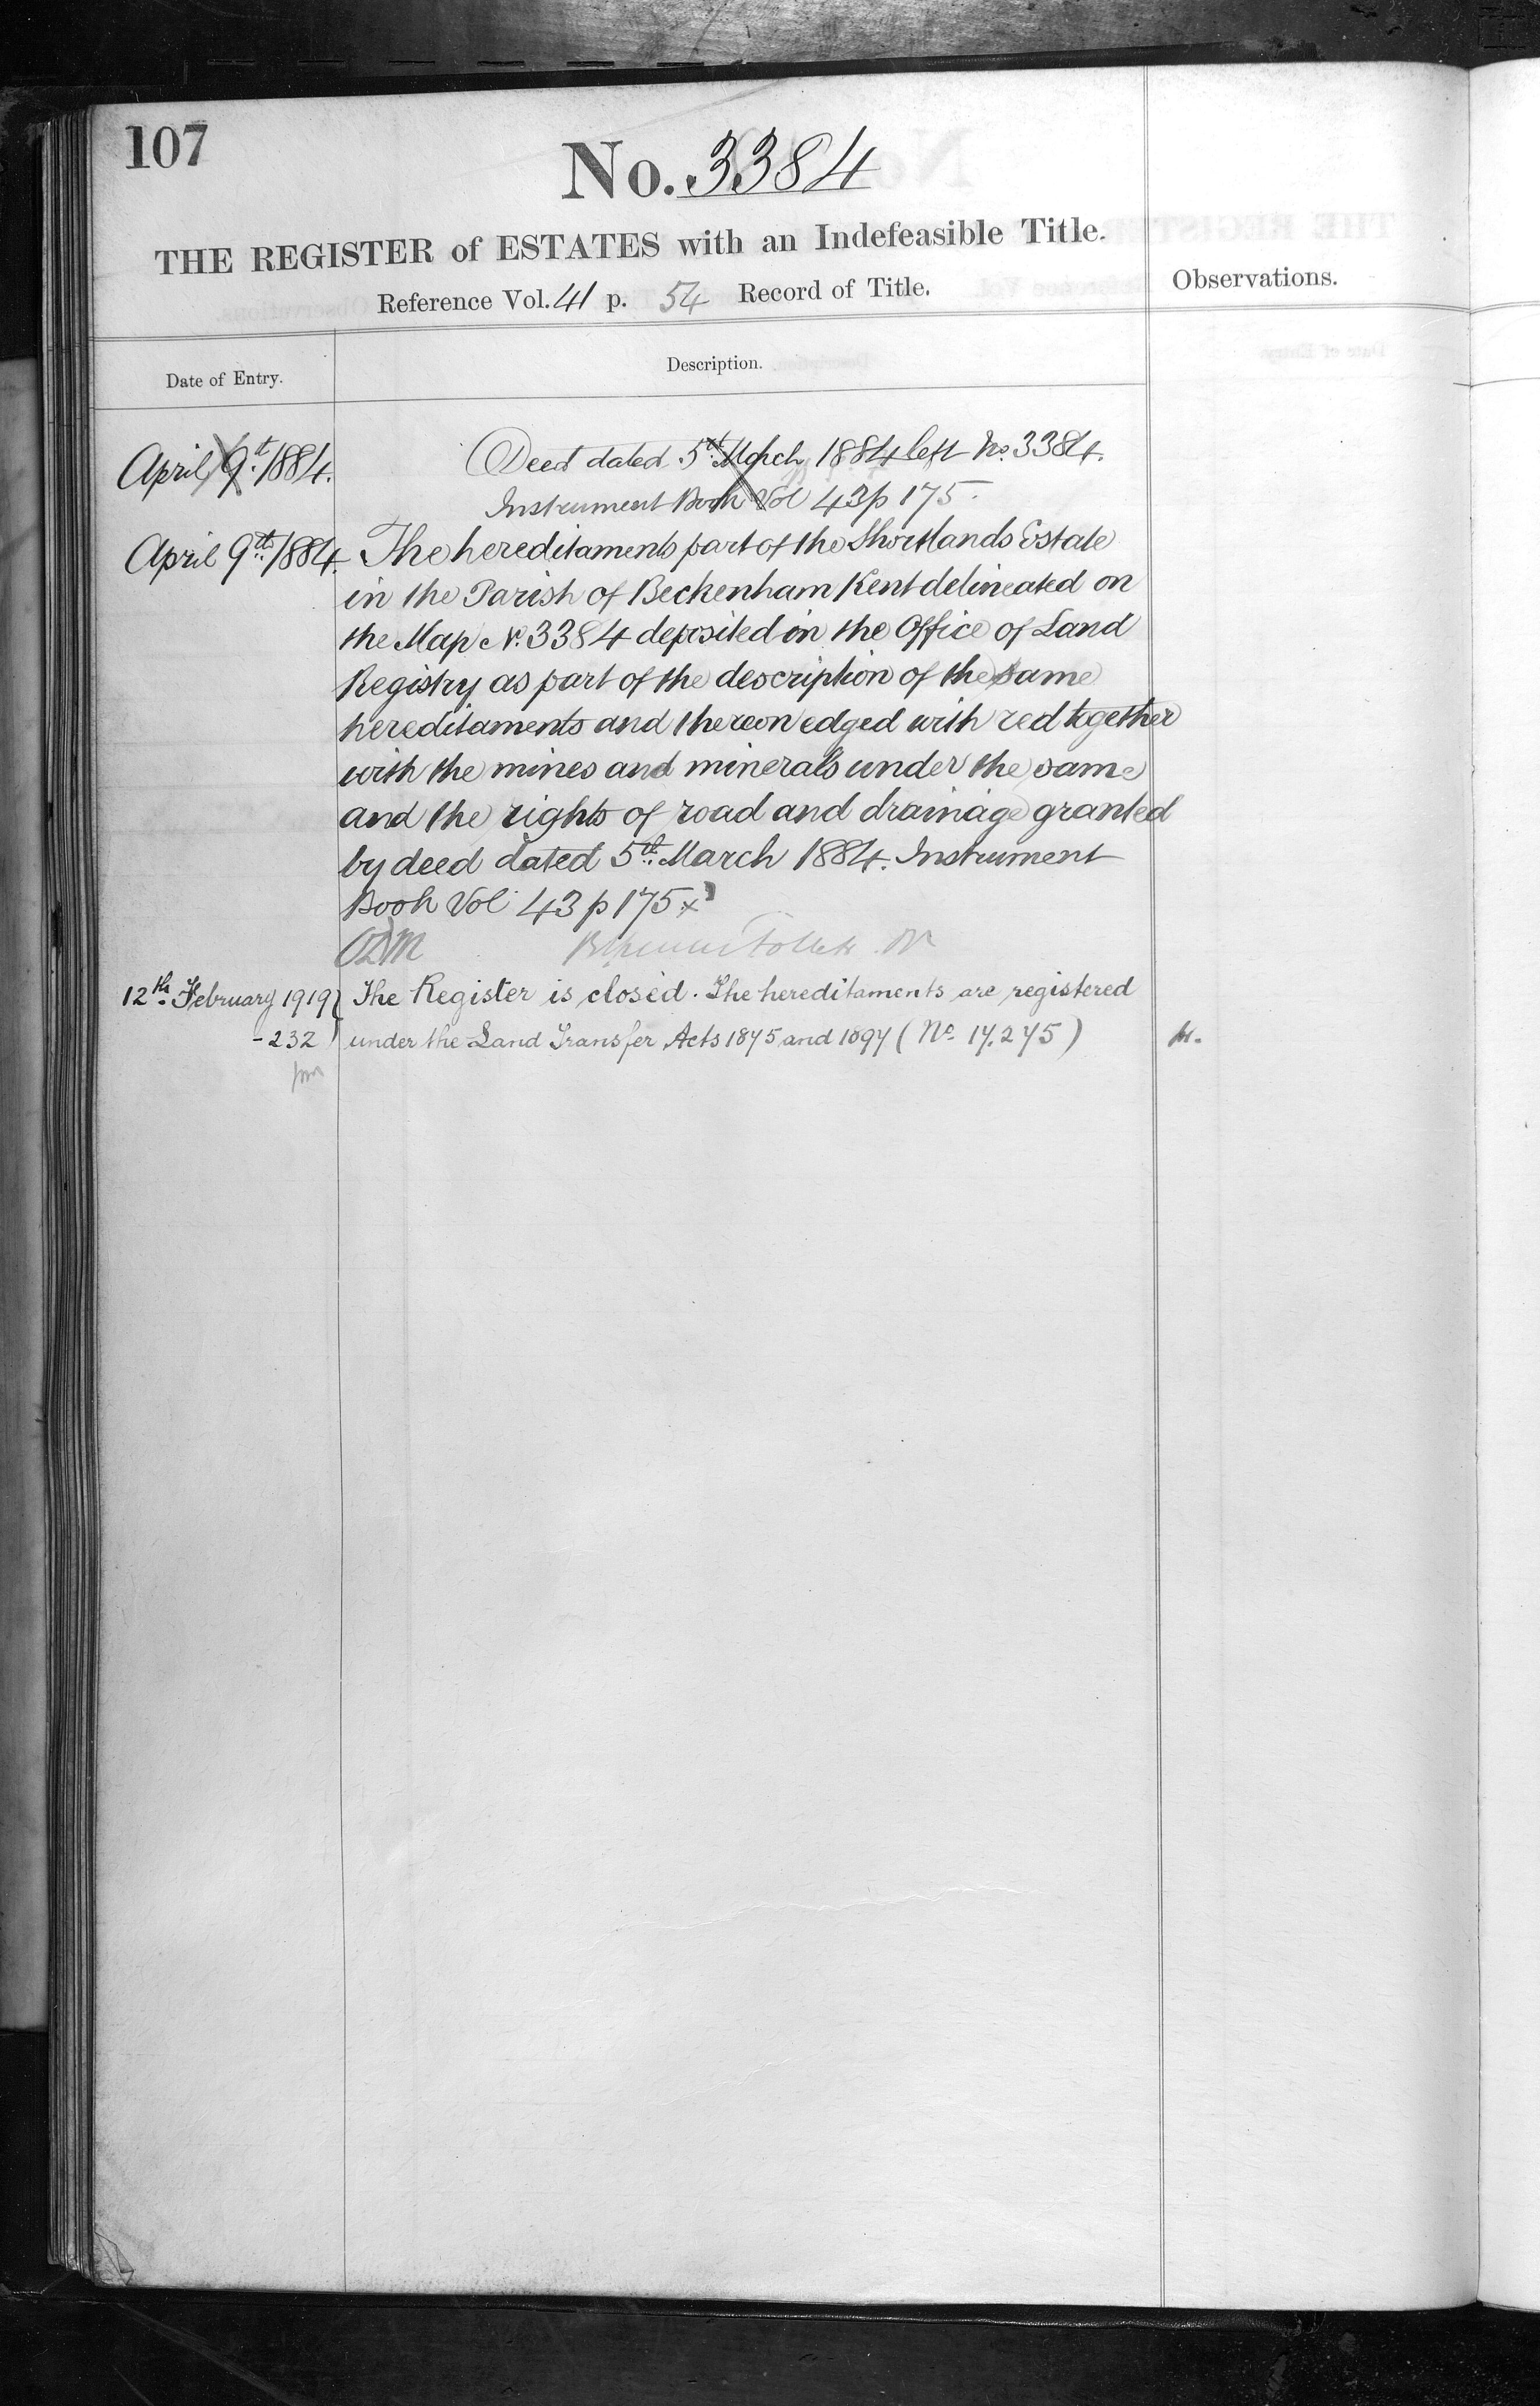 107
No. 3384
THE REGISTER of ESTATES with an Indefeasible Title.
Reference Vol. 41 p. 54 Record of Title.
Observations.
Date of Entry.
Description.
April 9th 1884.
Deed dated 5th March 1884 left No. 3384.
Instrument Book Vol 43 p 175.
April 9th 1884.
The hereditaments part of the Shortlands Estate
in the Parish of Beckenham Kent delineated on
the Map No. 3384 deposited in the Office of Land
Registry as part of the description of the same
hereditaments and thereon edged with red together
with the mines and minerals under the same
and the rights of road and drainage granted
by deed dated 5th March 1884. Instrument
Book Vol 43 p 175 x
12th February 1919
The Register is closed. The hereditaments are registered
-232
under the Land Transfer Acts 1875 and 1897 (No. 17,275)